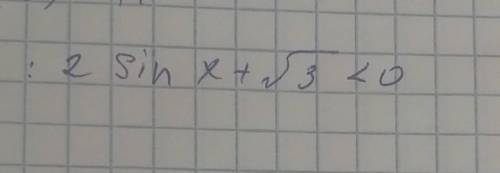 : 2 sin x + √3 < 0